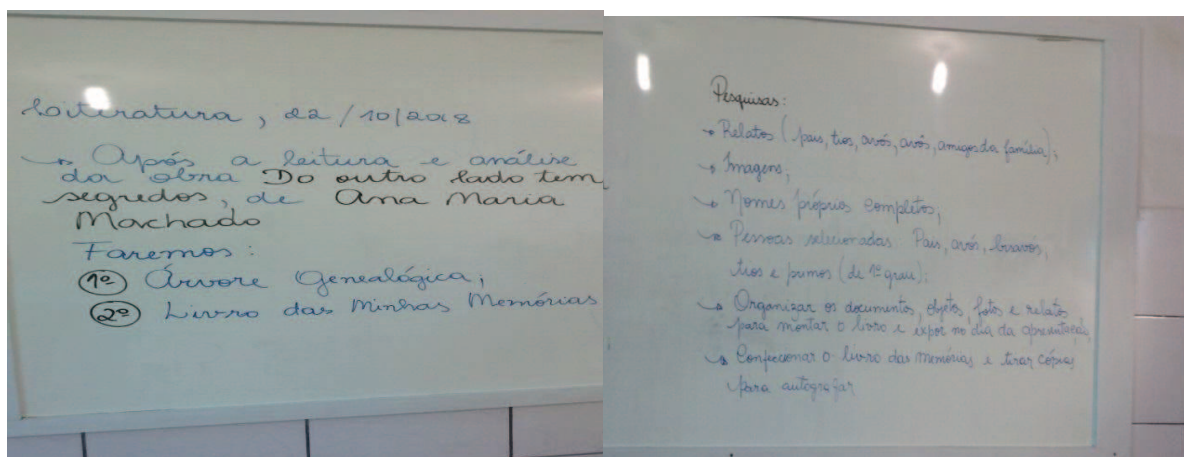 Literatura, 22/10/2018
→ Após a leitura e análise
da obra Do outro lado tem
segredos, de Ana Maria
Machado
Faremos:
1º Árvore Genealógica;
2º Livro das Minhas Memórias
Pesquisas:
→ Relatos (pais, tios, avós, avôs, amigos da família);
→ Imagens;
→ Nomes próprios completos;
→ Pessoas selecionadas Pais, avós, bisavós,
tios e primos (de 1º grau);
→ Organizar os documentos, objetos, fotos e relatos
para montar o livro e expor no dia da apresentação
→ Confeccionar o livro das memórias e tirar cópias
para autografar